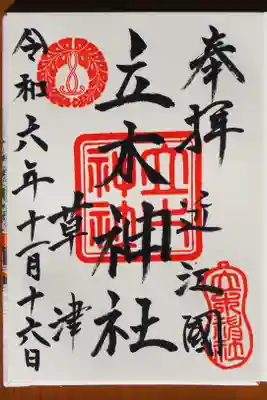 奉拝
近江國
立木神社
草津
立木神社
令和六年十一月十六日